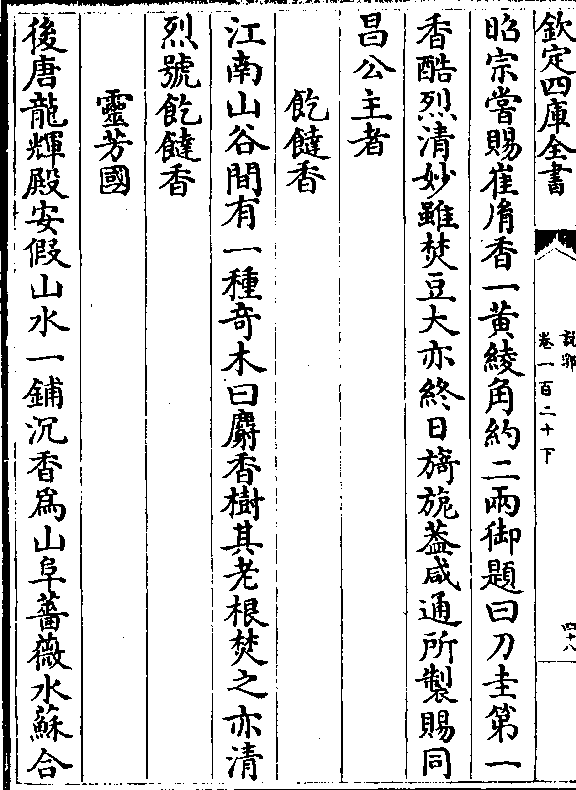 欽定四庫全書
說郛
卷一百二十下
四十八
昭宗嘗賜崔胤香一黃綾角約二兩御題曰刀圭第一
香酷烈清妙雖焚豆大亦終日旖旎葢咸通所製賜同
昌公主者
飣餖香
江南山谷間有一種竒木曰麝香樹其老根焚之亦清
烈號飣餖香
靈芳國
後唐龍輝殿安假山水一鋪沉香為山阜薔薇水蘇合